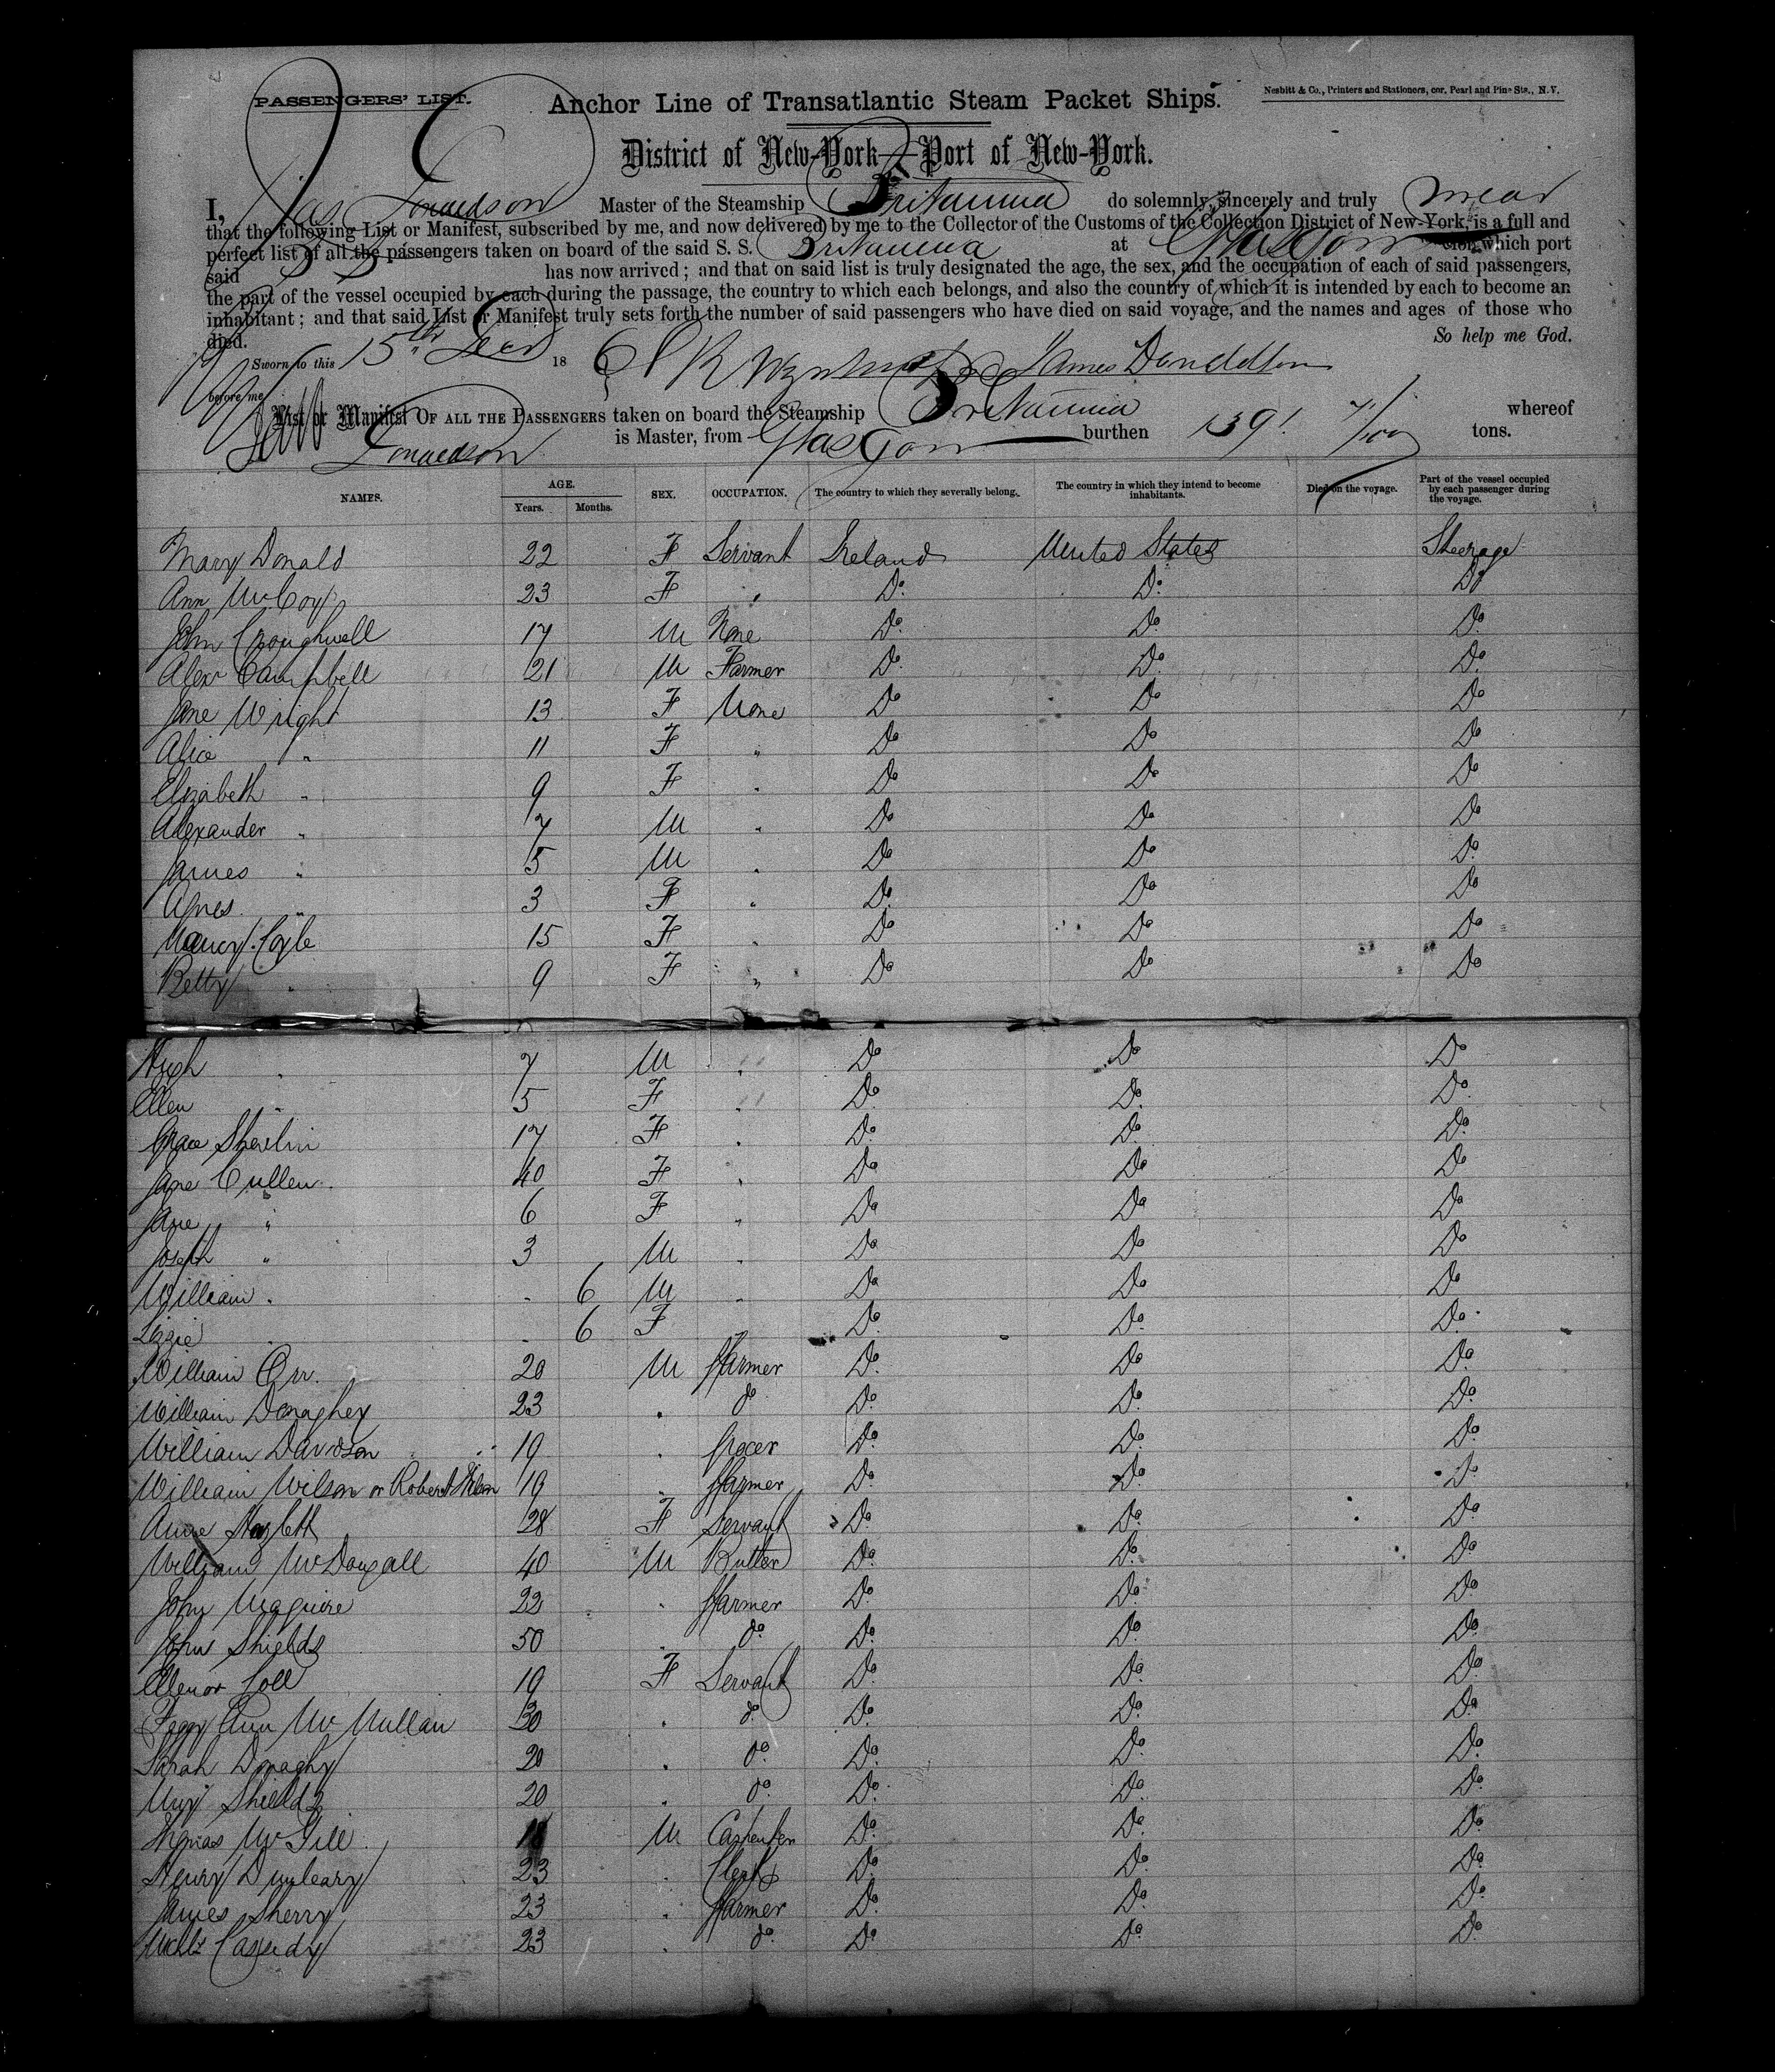 PASSENGERS' LIST.
Anchor Line of Transatlantic Steam Packet Ships.
Nesbitt & Co., Printers and Stationers, cor. Pearl and Pine Sts., N.Y.
District of New-York—Port of New-York.
I, Jas Donaldson Master of the Steamship Britannia do solemnly, sincerely and truly swear
that the following List or Manifest, subscribed by me, and now delivered by me to the Collector of the Customs of the Collection District of New-York, is a full and
perfect list of all the passengers taken on board of the said S. S. Britannia at Glasgow from which port
said S S has now arrived; and that on said list is truly designated the age, the sex, and the occupation of each of said passengers,
the part of the vessel occupied by each during the passage, the country to which each belongs, and also the country of which it is intended by each to become an
inhabitant; and that said List or Manifest truly sets forth the number of said passengers who have died on said voyage, and the names and ages of those who
died. So help me God.
Sworn to this 15th 186 James Donaldson
before me
List or Manifest OF ALL THE PASSENGERS taken on board the Steamship Britannia whereof
Donaldson is Master, from Glasgow burthen 1391 71/100 tons.
NAMES. AGE. Years. Months. SEX. OCCUPATION. The country to which they severally belong. The country in which they intend to become inhabitants. Died on the voyage. Part of the vessel occupied by each passenger during the voyage.
Mary Donald 22 F Servant Ireland United States Steerage
Ann McCoy 23 F " Do. Do. Do
John Croughwell 17 M None Do. Do. Do.
Alexr Campbell 21 M Farmer Do. Do. Do.
Jane Wright 13 F None Do Do Do
Alice " 11 F " Do Do Do
Elizabeth " 9 F " Do Do Do
Alexander " 7 M " Do Do Do
James " 5 M " Do Do Do
Agnes " 3 F " Do. Do Do
Nancy Coyle 15 F " Do Do Do
Betty " 9 F " Do Do Do
Hugh " 7 M " Do Do Do
Ellen " 5 F " Do. Do. Do.
Grace Sherlin 17 F " Do. Do. Do.
Jane Cullen 40 F " Do Do Do
Jane " 6 F " Do Do Do
Joseph " 3 M " Do Do Do
William " " 6 M " Do Do Do
Lizzie " " 6 F Do. Do. Do.
William Orr. 20 M Farmer Do. Do Do.
William Donaghey 23 " do Do. Do. Do.
William Davidson 19 " Grocer Do. Do. Do.
William Wilson or Robert Wilson 19 " Farmer Do. Do. Do
Anne Hazlett 28 F Servant Do. Do. Do.
William McDougall 40 M Butler Do. Do. Do.
John Maguire 22 " Farmer Do. Do. Do.
John Shields 50 " do. Do. Do. Do.
Ellenor Coll 19 F Servant Do. Do. Do.
Ann McMullan 30 " do. Do. Do. Do.
Sarah Donaghy 20 " do. Do. Do. Do.
Shields 20 " do. Do. Do. Do.
Thomas McGill 18 M Carpenter Do. Do. Do.
Henry Dunleary 23 " Clerk Do. Do. Do.
James Sherry 23 " Farmer Do. Do. Do.
Cassedy 23 " do. Do. Do. Do.